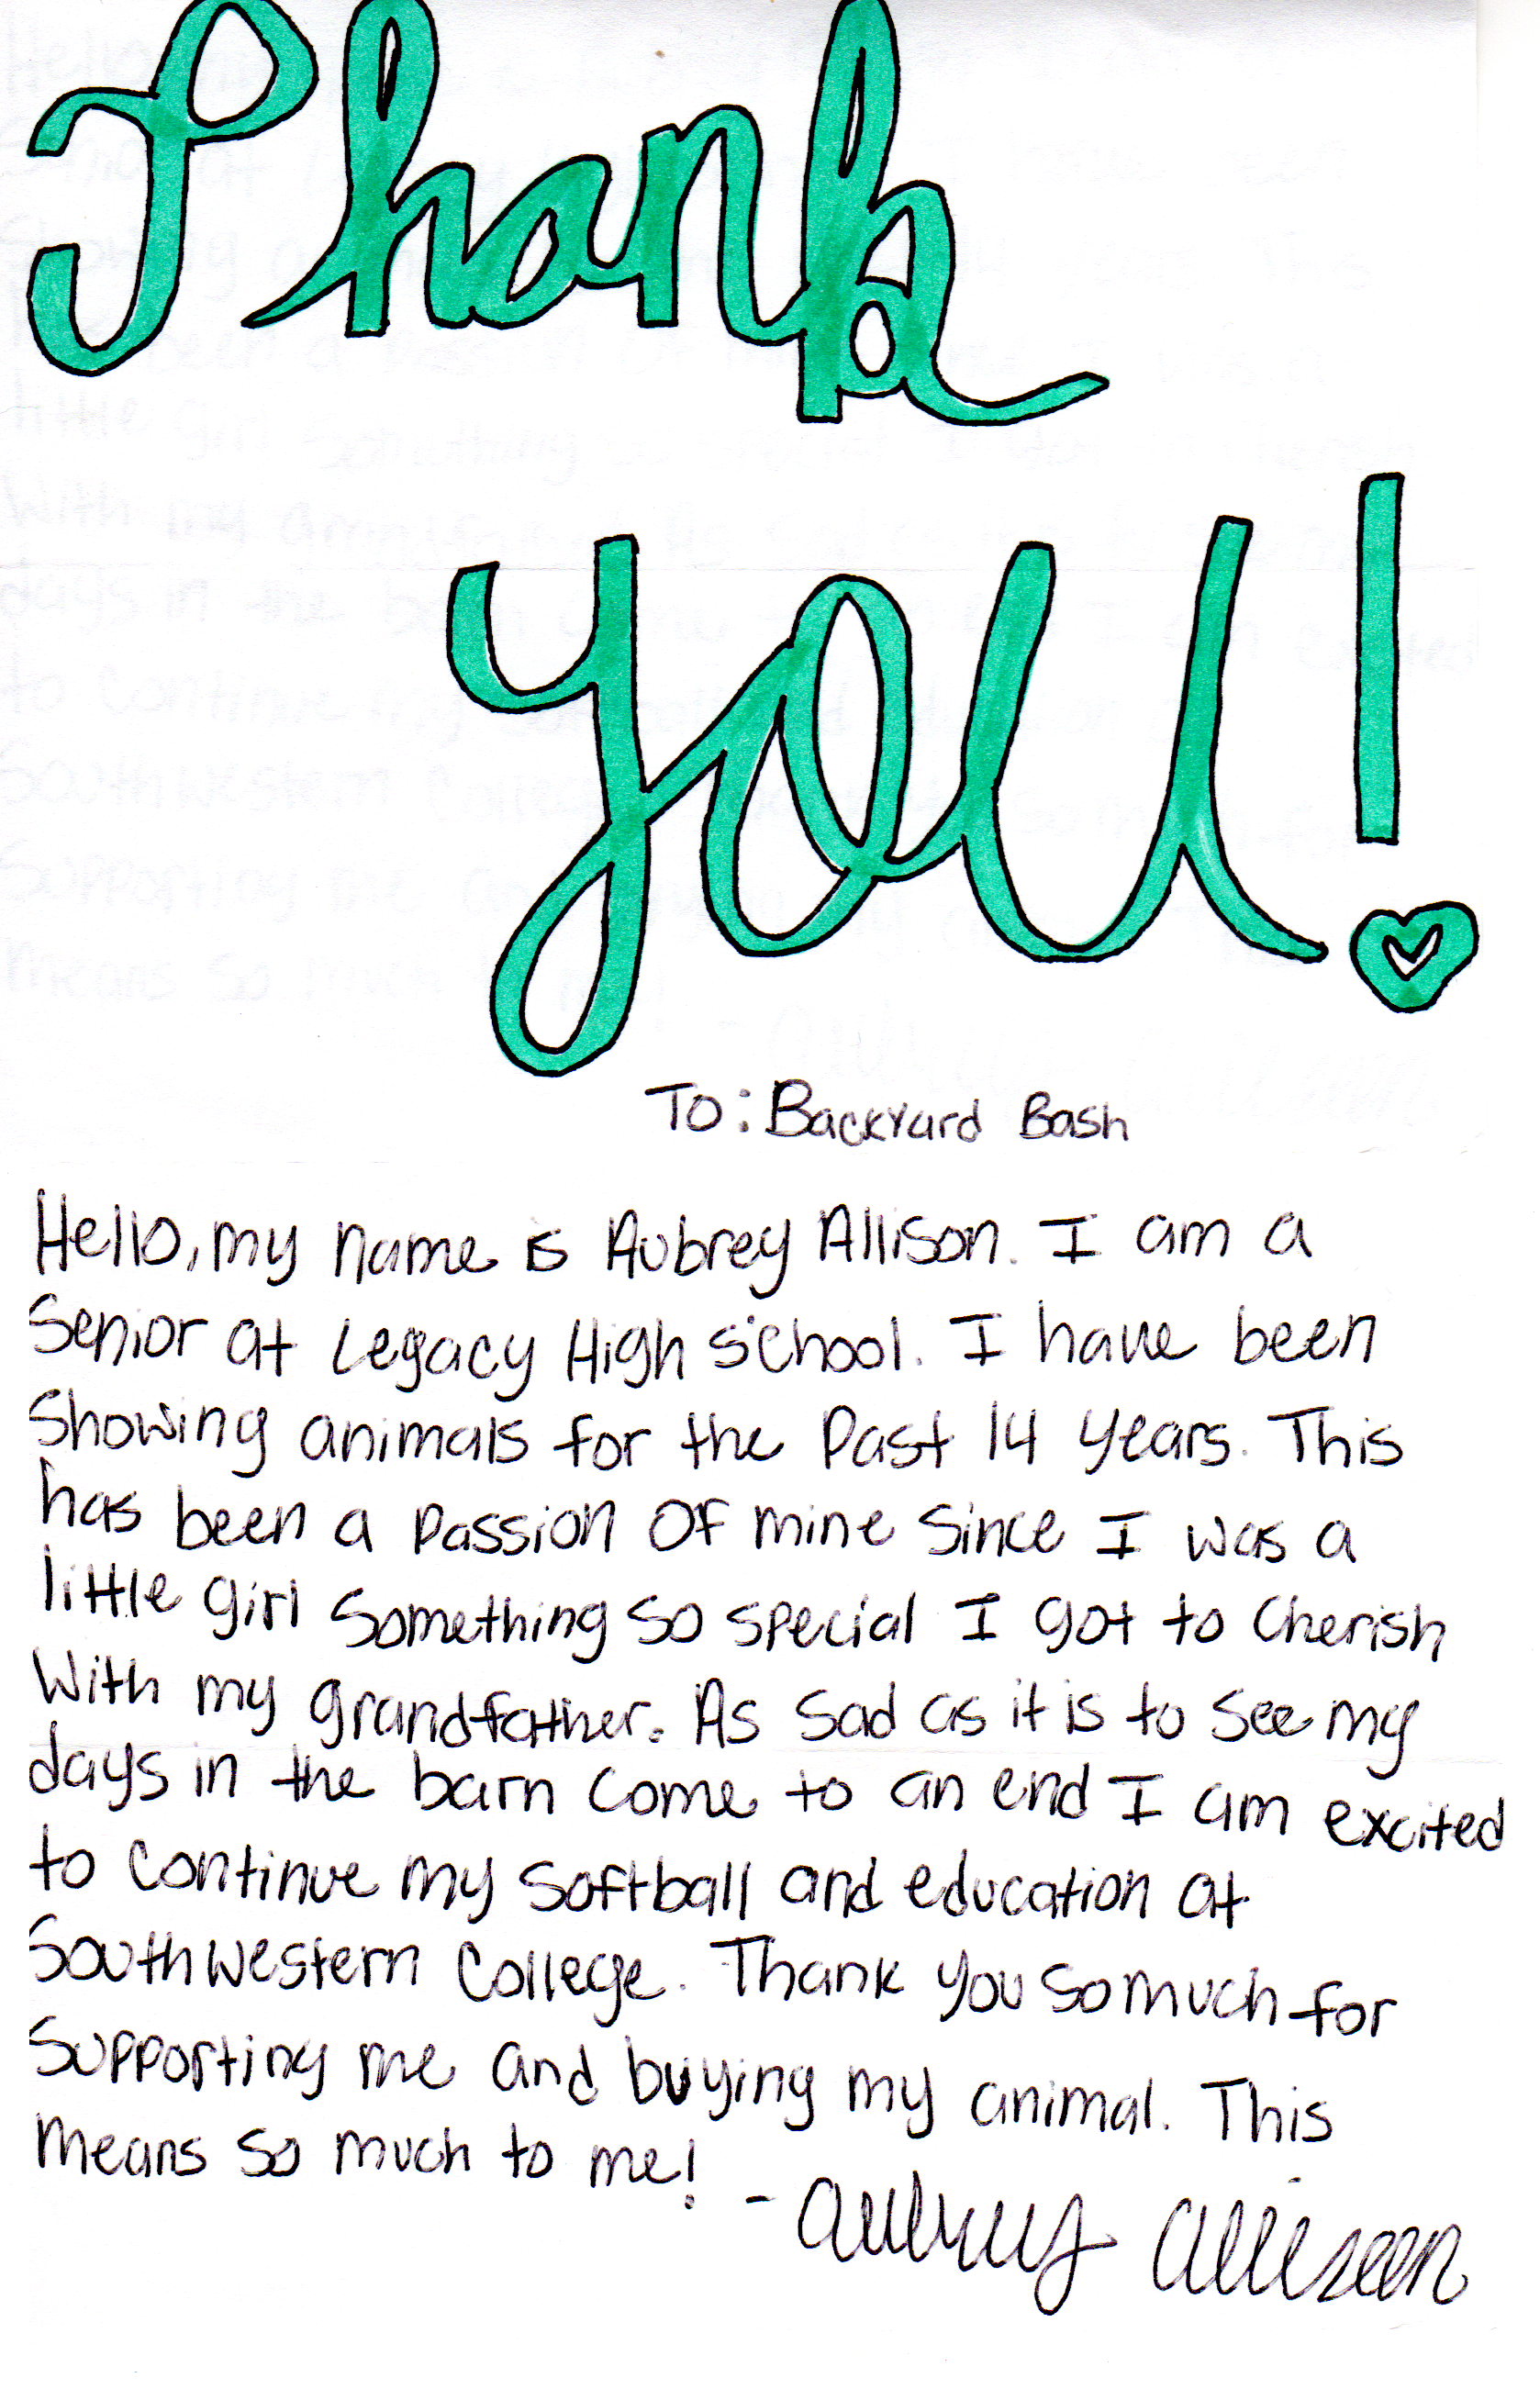 Thank
you!
To: Backyard Bash
Hello, my name is Aubrey Allison. I am a
Senior at Legacy High School. I have been
Showing animals for the Past 14 years. This
has been a passion of mine since I was a
little girl Something so special I got to cherish
With my grandfather. As sad as it is to see my
days in the barn come to an end I am excited
to continue my softball and education at
Southwestern College. Thank you so much for
Supporting me and buying my animal. This
means so much to me!
- Aubrey Allison